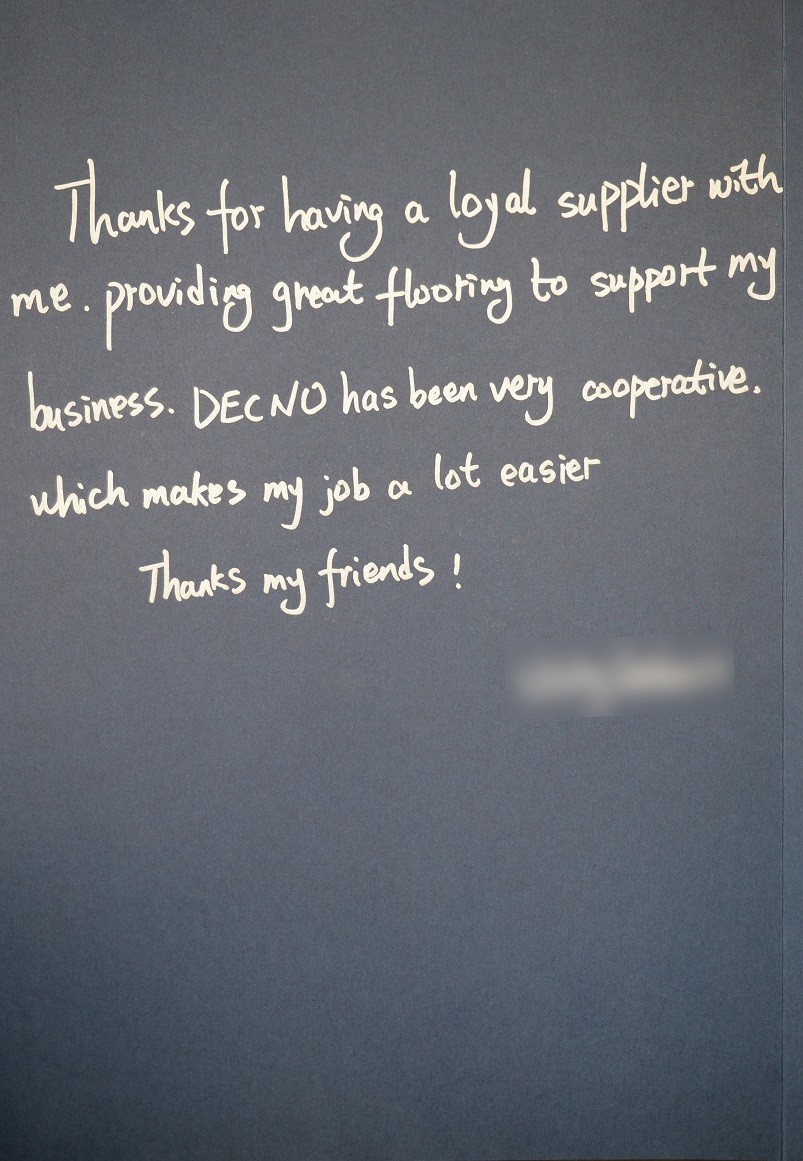 Thanks for having a loyal supplier with
me. providing great flooring to support my
business. DECNO has been very cooperative.
which makes my job a lot easier
Thanks my friends!